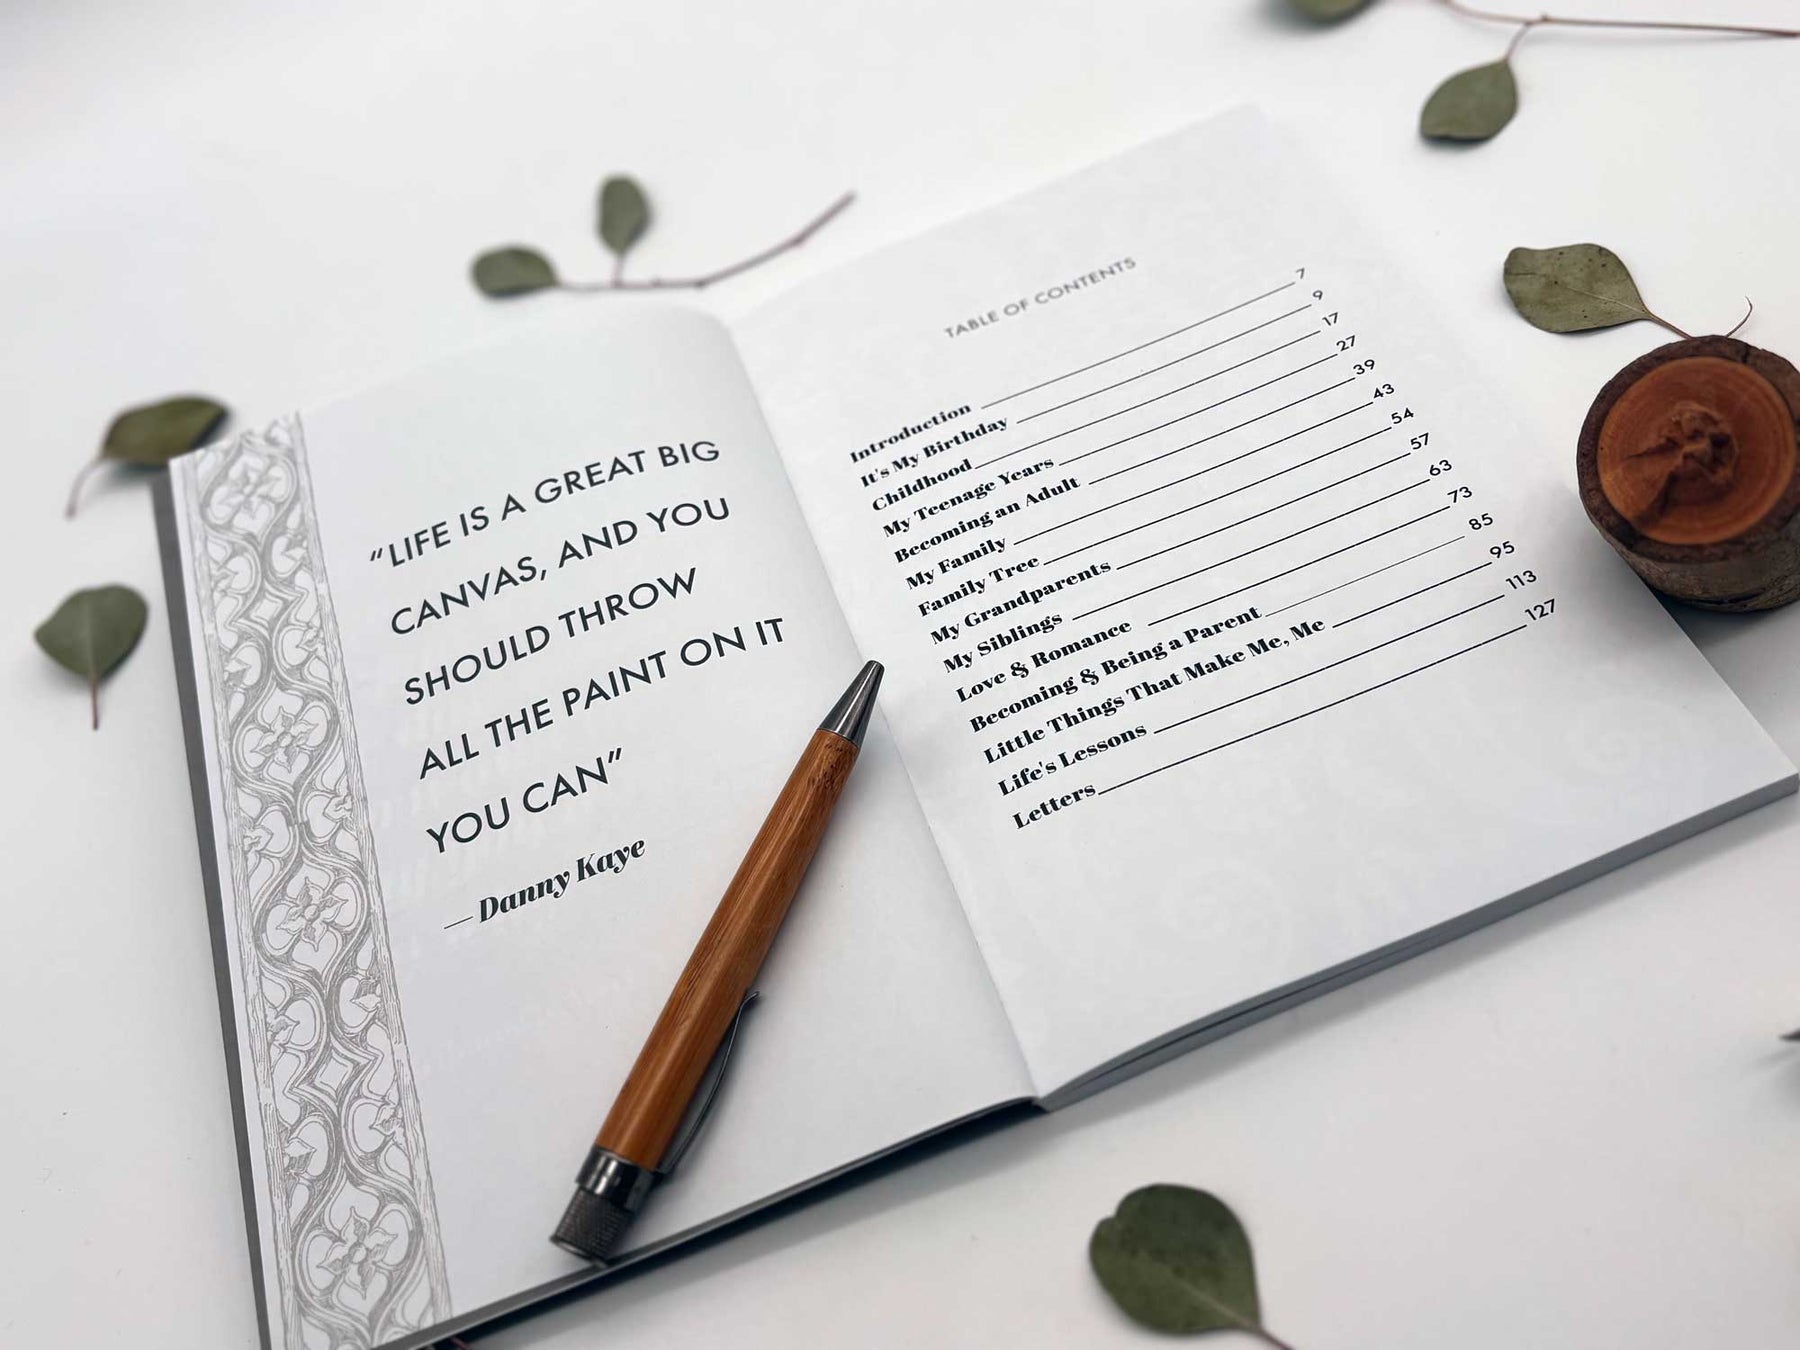 "LIFE IS A GREAT BIG
CANVAS, AND YOU
SHOULD THROW
ALL THE PAINT ON IT
YOU CAN"
— Danny Kaye
TABLE OF CONTENTS
Introduction 7
It's My Birthday 9
Childhood 17
My Teenage Years 27
Becoming an Adult 39
My Family 43
Family Tree 54
My Grandparents 57
My Siblings 63
Love & Romance 73
Becoming & Being a Parent 85
Little Things That Make Me, Me 95
Life's Lessons 113
Letters 127